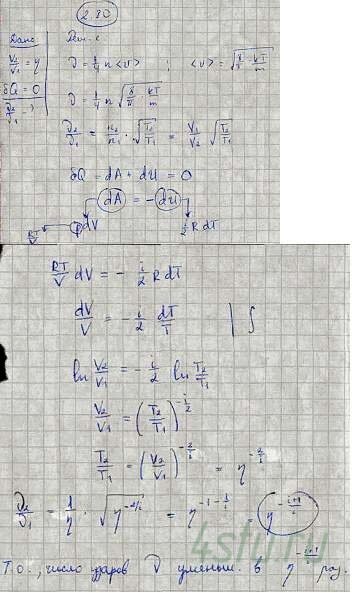 2.80
Дано
Реш-е
V₂/V₁ = η
ν = 1/4 n <v> ; <v> = √(8/π · kT/m)
δQ = 0
ν₂/ν₁ - ?
ν = 1/4 n √(8/π · kT/m)
ν₂/ν₁ = n₂/n₁ · √(T₂/T₁) = V₁/V₂ √(T₂/T₁)
δQ = dA + dU = 0
dA = -dU
RT/V ← p dV
i/2 R dT
RT/V dV = - i/2 R dT
dV/V = - i/2 dT/T | ∫
ln V₂/V₁ = - i/2 ln T₂/T₁
V₂/V₁ = (T₂/T₁)^(-i/2)
T₂/T₁ = (V₂/V₁)^(-2/i) = η^(-2/i)
ν₂/ν₁ = 1/η · √(η^(-2/i)) = η^(-1-1/i) = η^(-(i+1)/i)
4stu.ru
Т.О., число ударов ν уменьш. в η^(-(i+1)/i) раз.